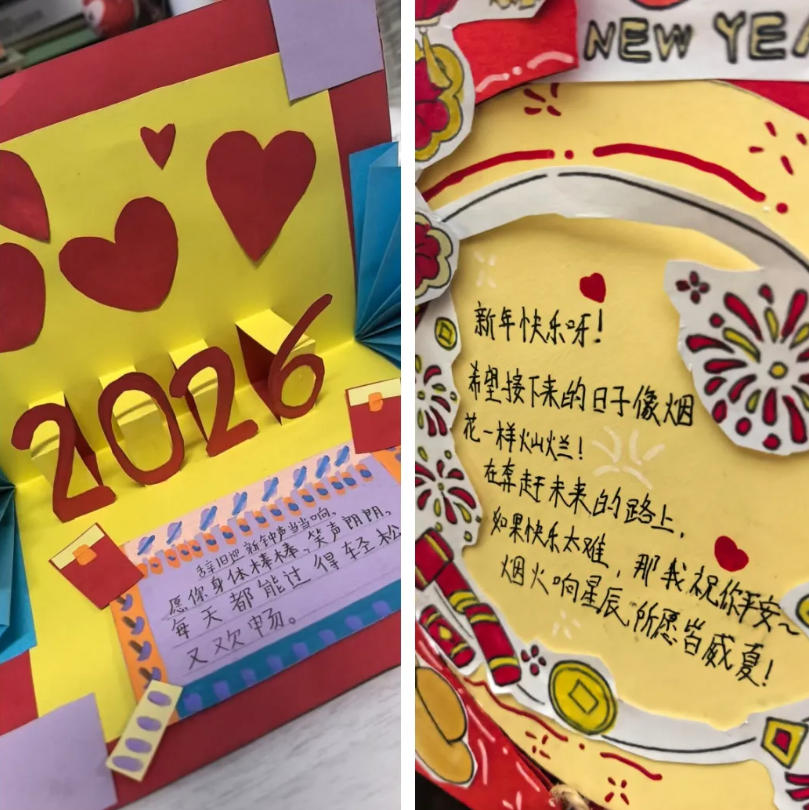 2026
辞旧迎新钟声当当响,
愿你身体棒棒,笑声朗朗,
每天都能过得轻松
又欢畅。
NEW YEA
新年快乐呀!
希望接下来的日子像烟
花一样灿烂!
在奔赶未来的路上,
如果快乐太难,那我祝你平安~
烟火响星辰,所愿皆成夏!